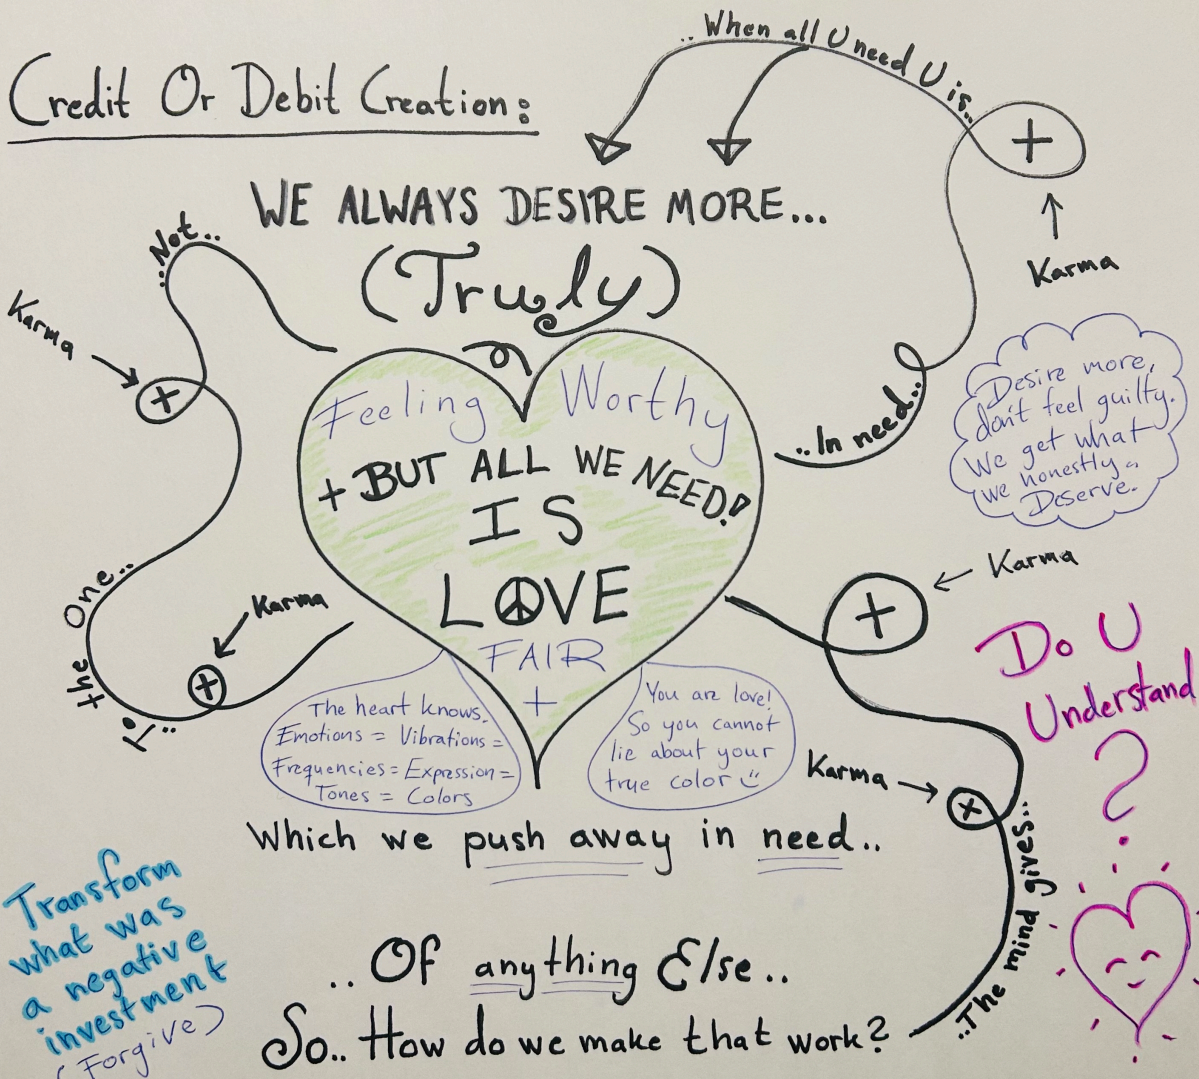 Credit Or Debit Creation:
..When all U need U is..
+
Karma
WE ALWAYS DESIRE MORE...
(Truly)
..Not..
Karma
+
Feeling Worthy
+ BUT ALL WE NEED!
IS
LOVE
FAIR
+
..In need..
Desire more,
don't feel guilty.
We get what
we honestly
Deserve.
the One..
To..
Karma
+
Karma
+
The heart knows.
Emotions = Vibrations =
Frequencies = Expression =
Tones = Colors
You are love!
So you cannot
lie about your
true color
Do U
Understand
?
Karma
+
Which we push away in need..
..The mind gives..
Transform
what was
a negative
investment
(Forgive)
..Of anything Else..
So.. How do we make that work?